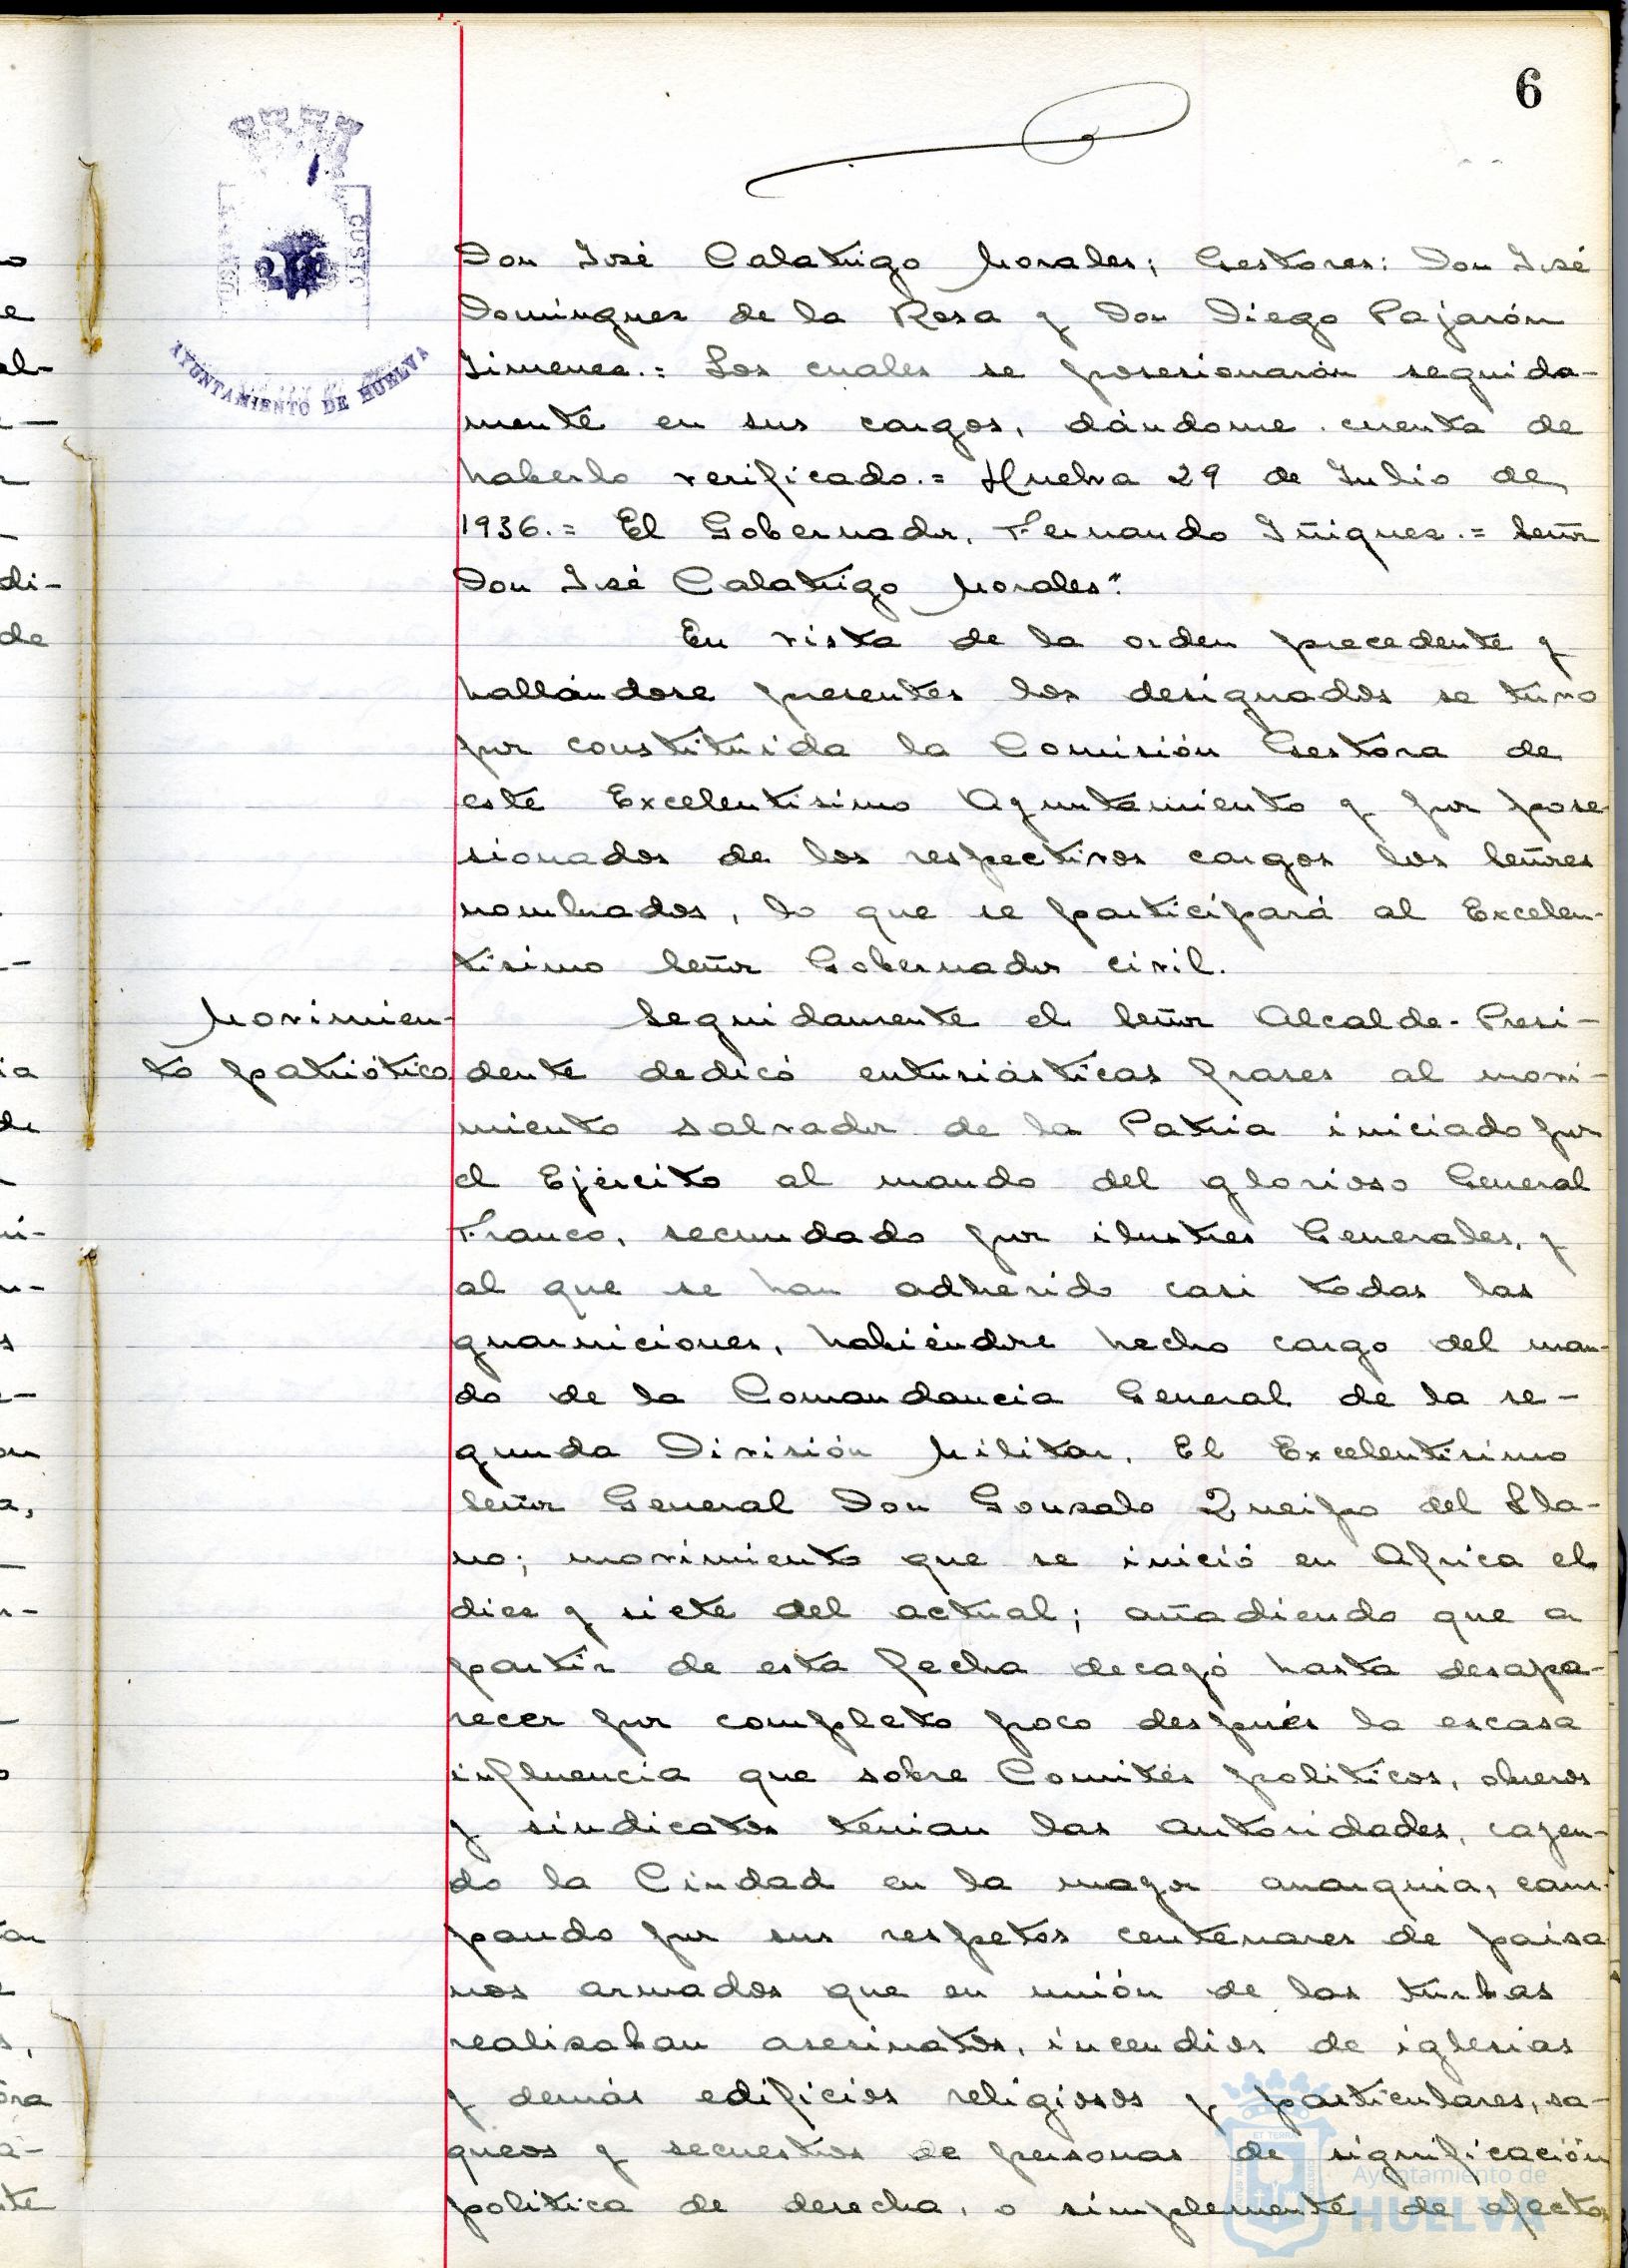 6
AYUNTAMIENTO DE HUELVA
Don José Calatrigo Morales; Gestores: Don José
Dominguez de la Rosa y Don Diego Pajarón
Jimenez.= Los cuales se posesionarán seguida-
mente en sus cargos, dándome cuenta de
haberlo verificado.= Huelva 29 de Julio de
1936.= El Gobernador, Fernando Iñiguez.= Señor
Don José Calatrigo Morales".
En vista de la orden precedente y
hallándose presentes los designados se tuvo
por constituida la Comisión Gestora de
este Excelentísimo Ayuntamiento y por pose-
sionados de los respectivos cargos los Señores
nombrados, lo que se participará al Excelen-
tísimo Señor Gobernador civil.
Movimien-
to patriótico
Seguidamente el Señor Alcalde-Presi-
dente dedicó entusiásticas frases al movi-
miento salvador de la Patria iniciado por
el Ejército al mando del glorioso General
Franco, secundado por ilustres Generales, y
al que se han adherido casi todas las
guarniciones, habiéndose hecho cargo del man-
do de la Comandancia General de la se-
gunda División Militar, El Excelentísimo
Señor General Don Gonzalo Queipo del Lla-
no; movimiento que se inició en Africa el
diez y siete del actual; añadiendo que a
partir de esta fecha decayó hasta desapa-
recer por completo poco después la escasa
influencia que sobre Comités políticos, obreros
y sindicatos tenian las autoridades, cayen-
do la Ciudad en la mayor anarquia, cam-
pando por sus respetos centenares de paisa
nos armados que en unión de las turbas
realizaban asesinatos, incendios de iglesias
y demás edificios religiosos y particulares, sa-
queos y secuestros de personas de significación
política de derecha, o simplemente de afecto
Ayuntamiento de
HUELVA